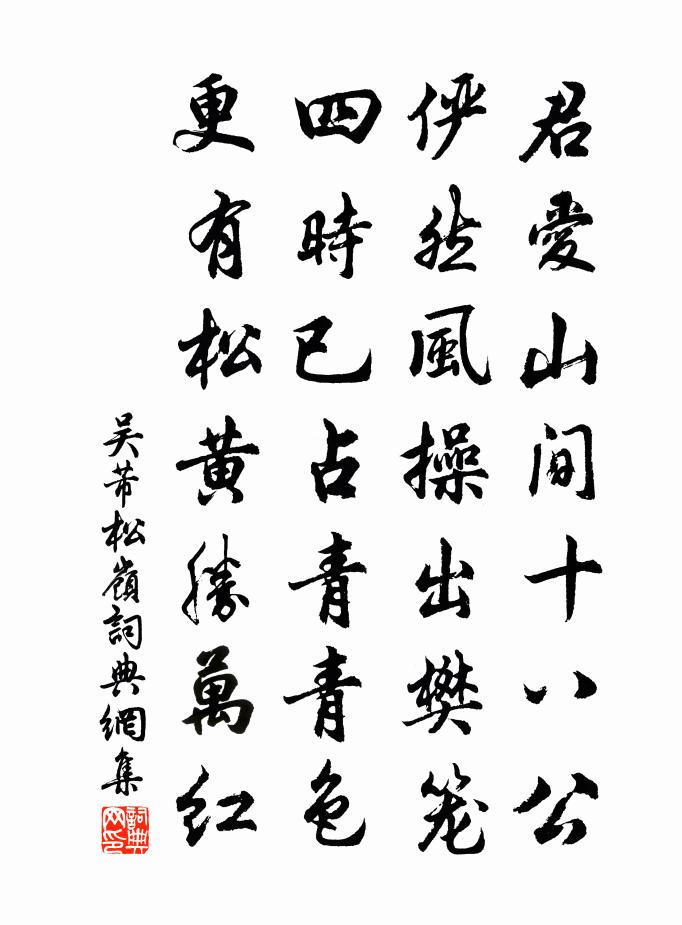 君愛山間十八公
俨然風操出樊笼
四時已占青青色
更有松黄勝萬红
吴芾松嶺詞典網集
詞典网印